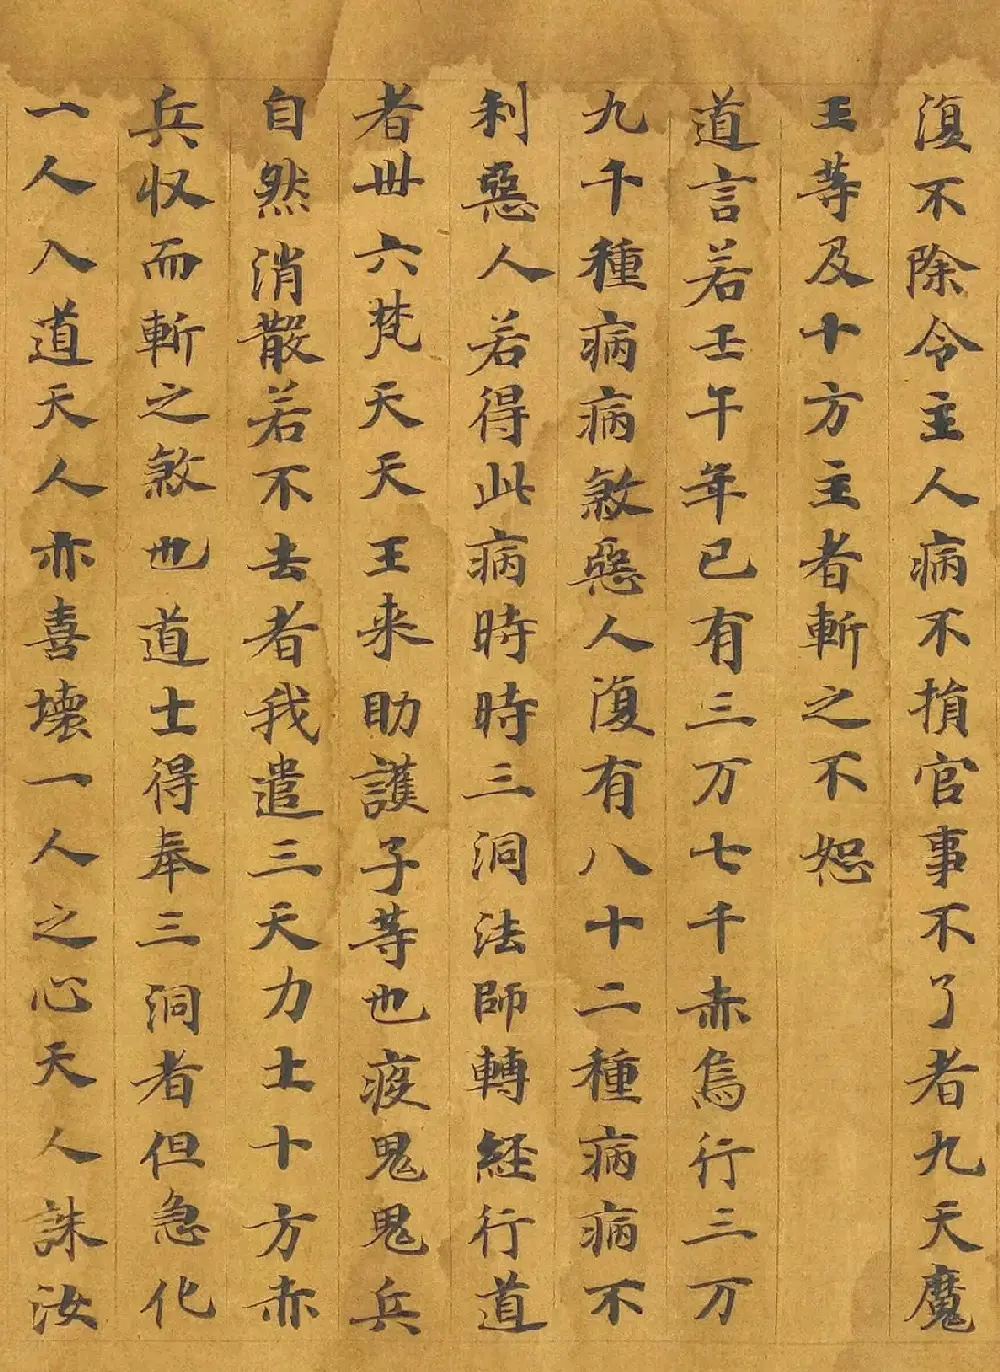 復不除令主人病不損官事不了者九天魔
王等及十方主者斬之不恕
道言若壬午年已有三万七千赤烏行三万
九千種病病煞惡人復有八十二種病病不
利惡人若得此病時時三洞法師轉経行道
者卅六梵天天王来助護子等也疫鬼鬼兵
自然消散若不去者我遣三天力士十方赤
兵収而斬之煞也道士得奉三洞者但急化
一人入道天人亦喜壞一人之心天人誅汝